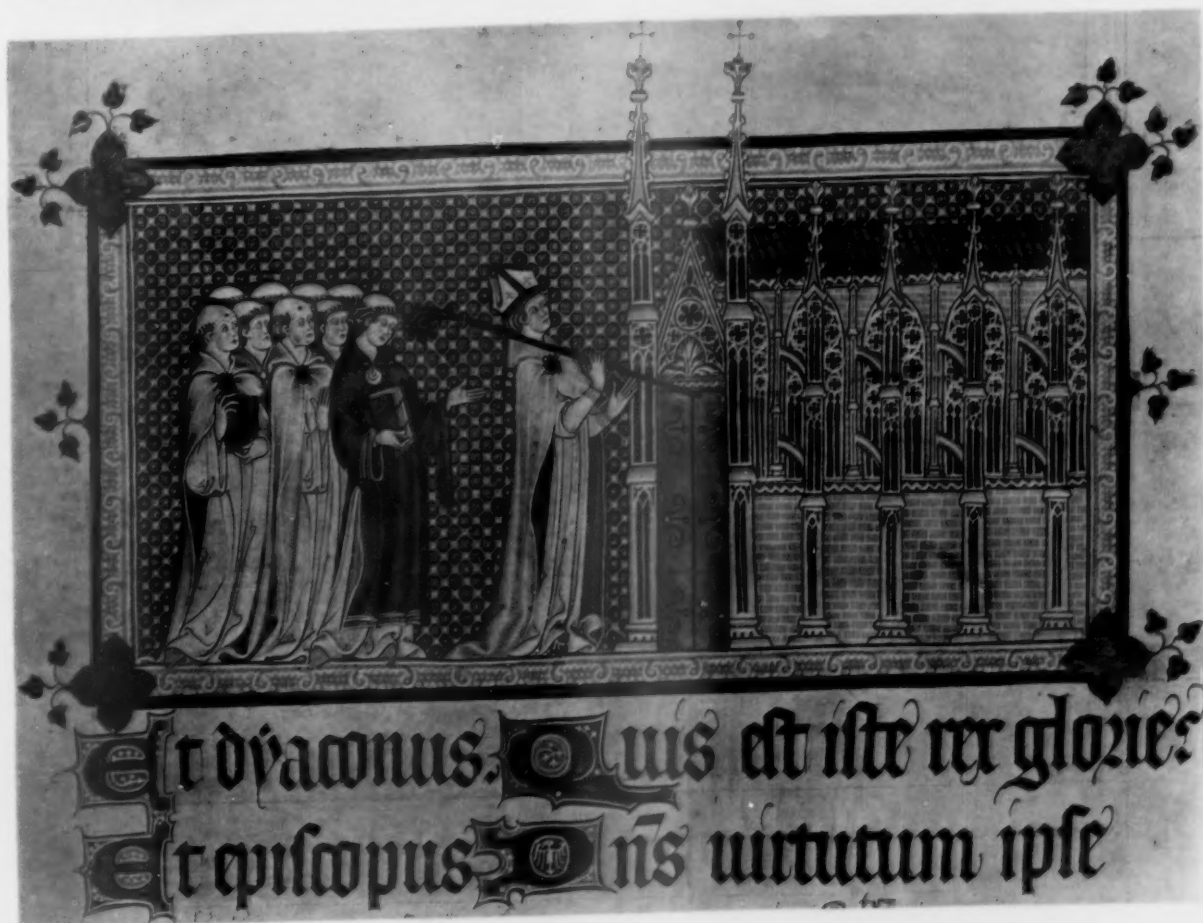 Et dÿaconus. Quis est iste rex glorie?
Et episcopus Dn̄s uirtutum ipse